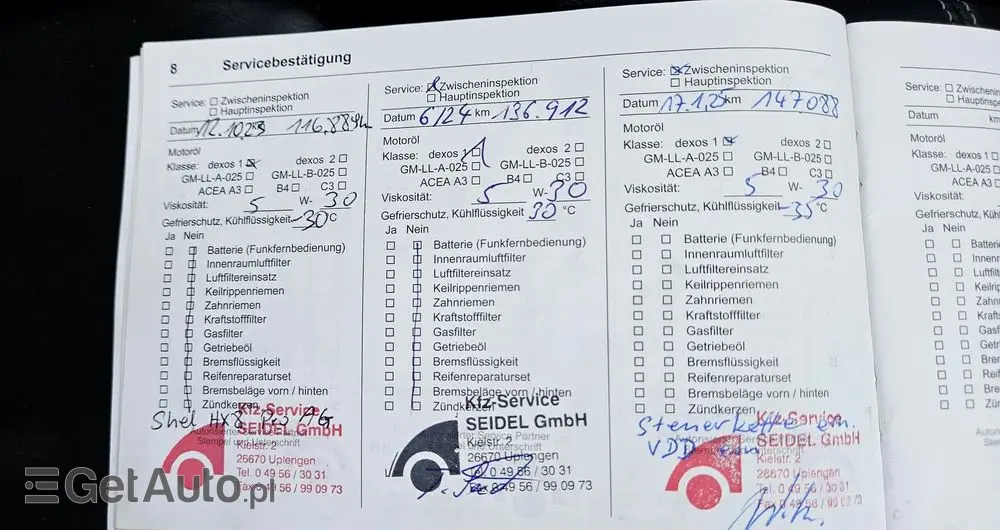 8 Servicebestätigung
Service: Zwischeninspektion
Hauptinspektion
Datum 12.10.23 116.889km
Motoröl
Klasse: dexos 1 dexos 2
GM-LL-A-025 GM-LL-B-025
ACEA A3 B4 C3
Viskosität: 5 W- 30
Gefrierschutz, Kühlflüssigkeit -30°C
Ja Nein
Batterie (Funkfernbedienung)
Innenraumluftfilter
Luftfiltereinsatz
Keilrippenriemen
Zahnriemen
Kraftstofffilter
Gasfilter
Getriebeöl
Bremsflüssigkeit
Reifenreparaturset
Bremsbeläge vorn / hinten
Zündkerzen
Shel HX8
Kfz-Service
SEIDEL GmbH
Stempel und Unterschrift
Kielstr. 2
26670 Uplengen
Tel. 0 49 56 / 30 31
Fax 0 49 56 / 99 09 73
Service: Zwischeninspektion
Hauptinspektion
Datum 6/24 km 136.912
Motoröl
Klasse: dexos 1 dexos 2
GM-LL-A-025 GM-LL-B-025
ACEA A3 B4 C3
Viskosität: 5 W- 30
Gefrierschutz, Kühlflüssigkeit 30 °C
Ja Nein
Batterie (Funkfernbedienung)
Innenraumluftfilter
Luftfiltereinsatz
Keilrippenriemen
Zahnriemen
Kraftstofffilter
Gasfilter
Getriebeöl
Bremsflüssigkeit
Reifenreparaturset
Bremsbeläge vorn / hinten
Zündkerzen
Kfz-Service
SEIDEL GmbH
Service Partner
Kielstr. 2
Unterschrift
26670 Uplengen
Tel. 0 49 56 / 30 31
Fax 0 49 56 / 99 09 73
Service: Zwischeninspektion
Hauptinspektion
Datum 17.1.25 km 147.088
Motoröl
Klasse: dexos 1 dexos 2
GM-LL-A-025 GM-LL-B-025
ACEA A3 B4 C3
Viskosität: 5 W- 30
Gefrierschutz, Kühlflüssigkeit -35 °C
Ja Nein
Batterie (Funkfernbedienung)
Innenraumluftfilter
Luftfiltereinsatz
Keilrippenriemen
Zahnriemen
Kraftstofffilter
Gasfilter
Getriebeöl
Bremsflüssigkeit
Reifenreparaturset
Bremsbeläge vorn / hinten
Zündkerzen
Steuerkette
VDD
Kfz-Service
SEIDEL GmbH
Kielstr. 2
26670 Uplengen
Tel. 0 49 56 / 30 31
Fax 0 49 56 / 99 09 73
Service:
Datum
Motoröl
Klasse: dexos
GM-LL-A-025
ACEA A3
Viskosität:
Gefrierschutz, Küh
Ja Nein
Batterie
Innenra
Luftfilt
Keilrip
Zahnri
Krafts
Gasfil
Getr
Brem
Reif
Bre
Zün
GetAuto.pl